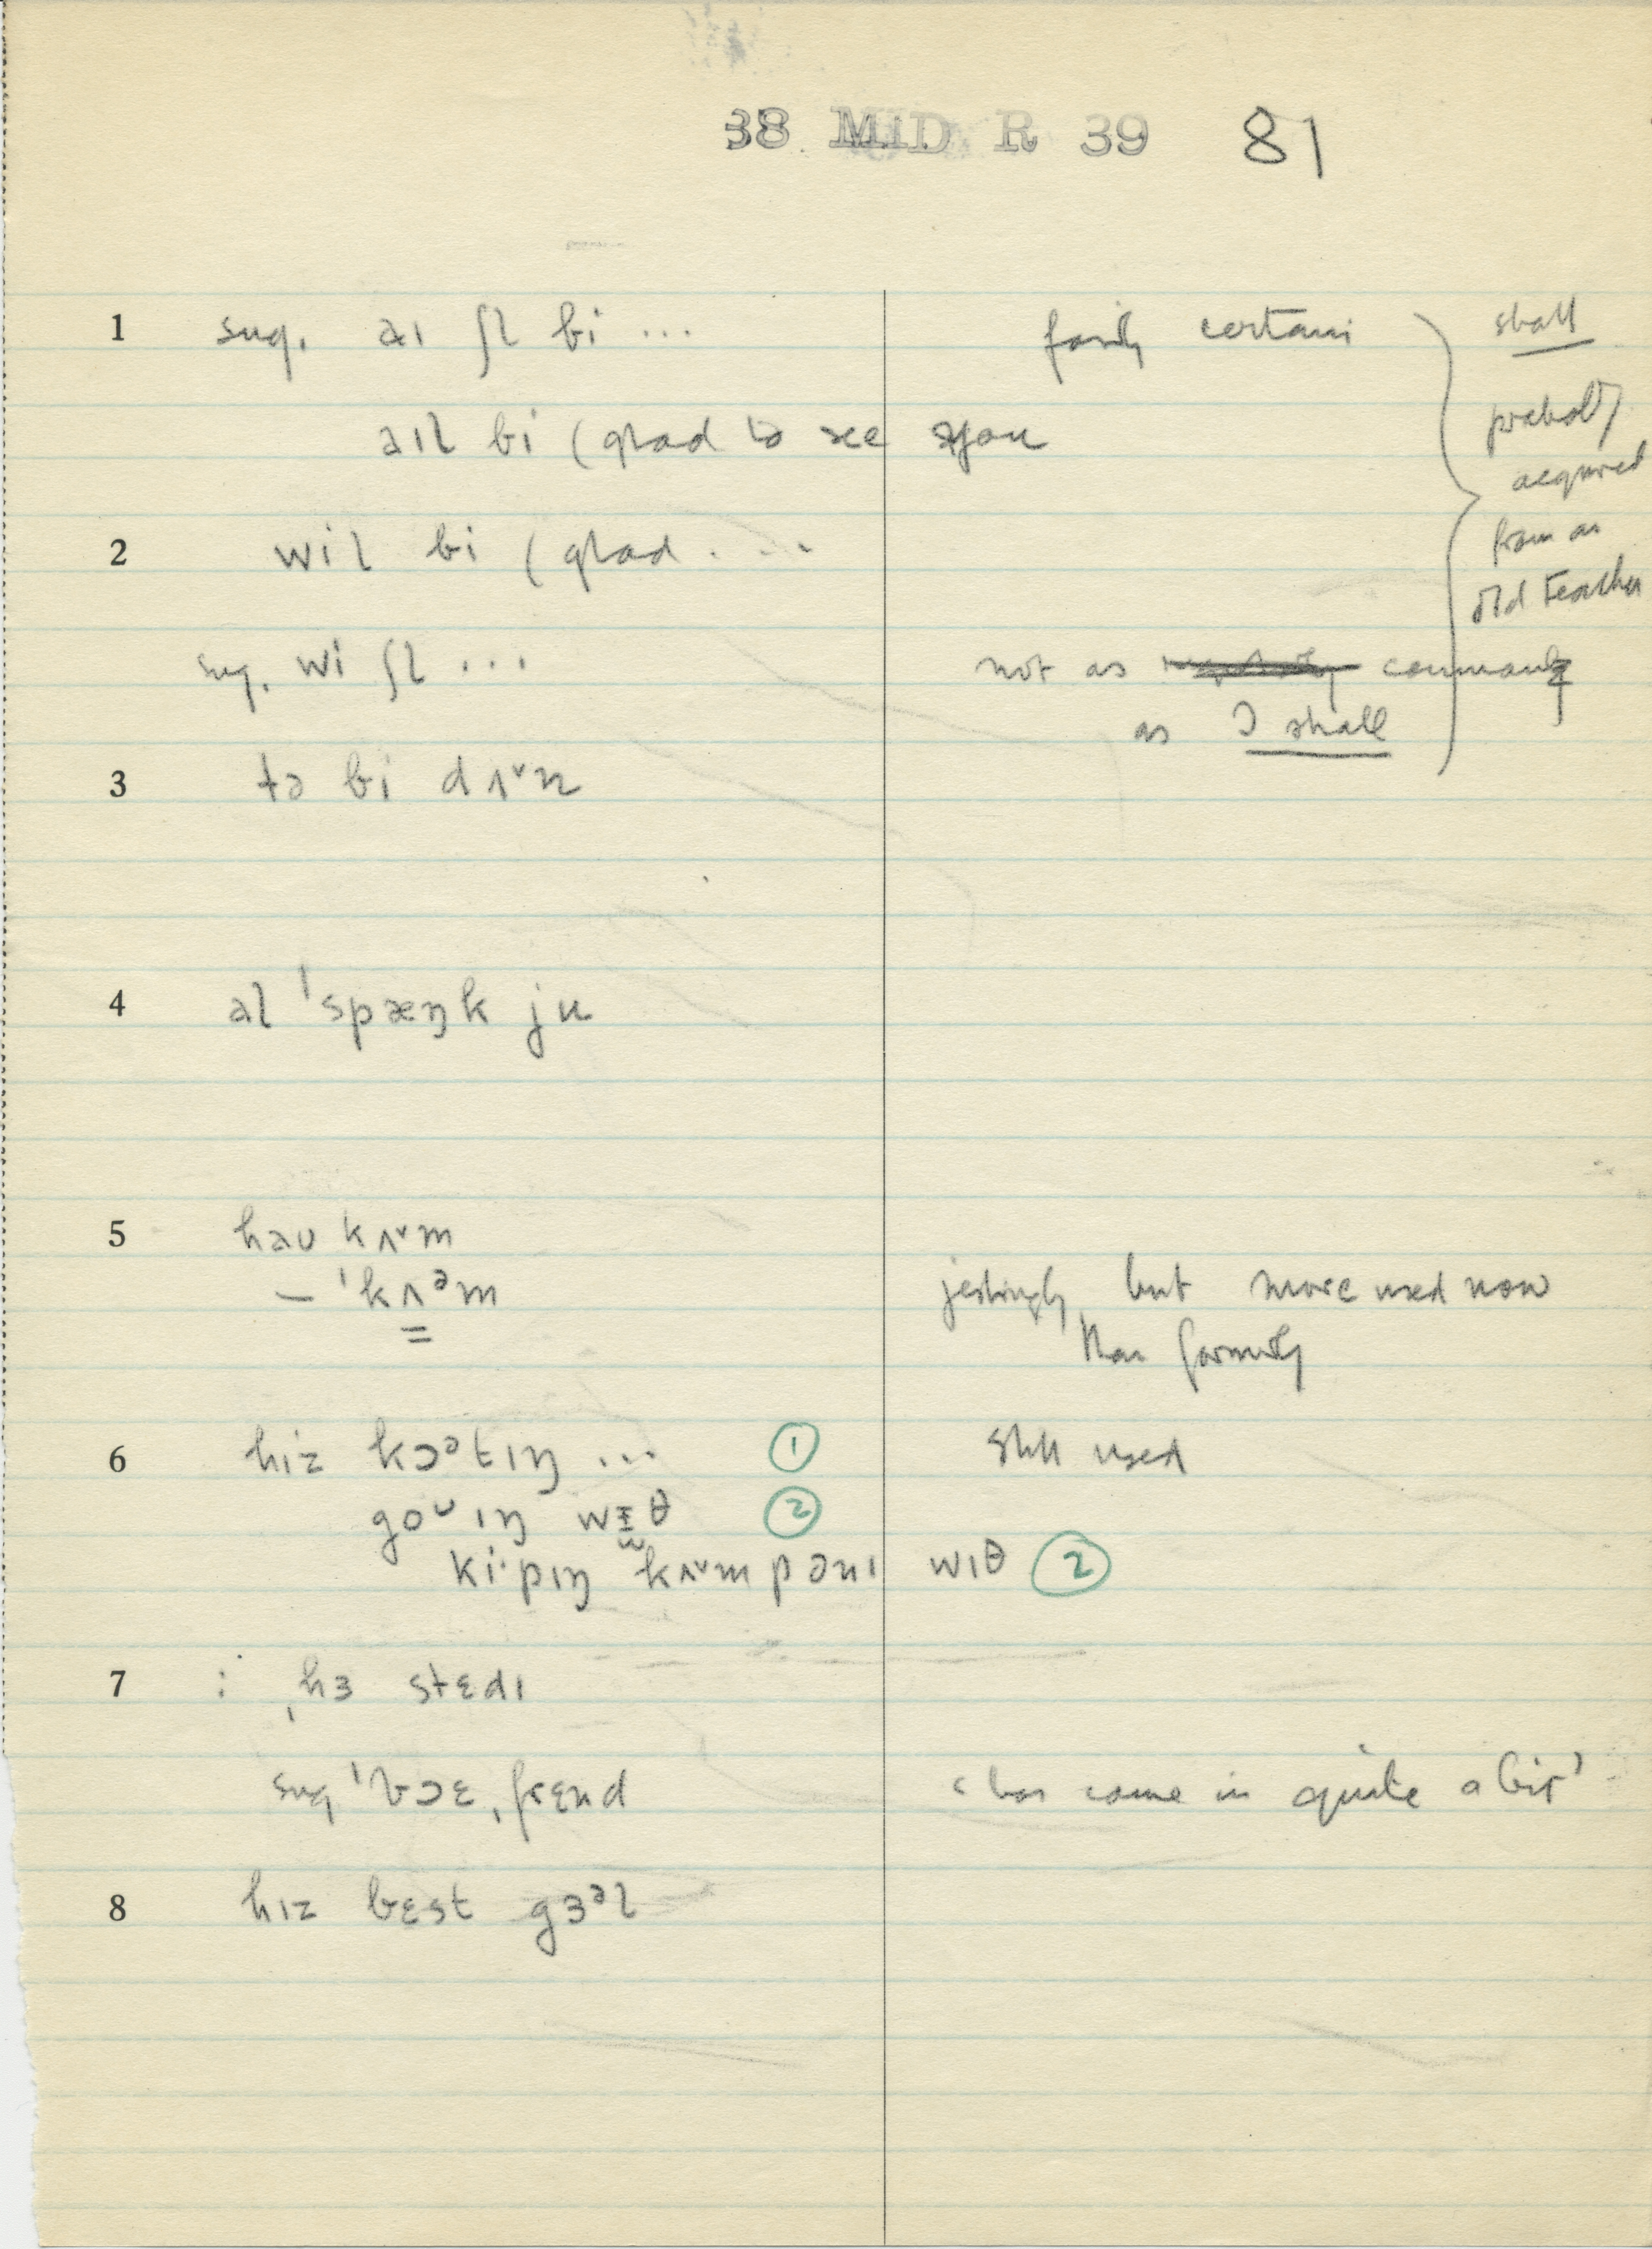 38 MID R 39 81
1 sug. aɪ ʃl bi ... fairly certain shall
aɪl bi (glad to see you probably
acquired
2 wil bi (glad ... from an
old teacher
sug. wi ʃl ... not as common
as I shall
3 tə bi dʌ˅n
4 al ˈspæŋk ju
5 haʊ kʌ˅m
– ˈkʌᵊm jestingly, but more used now
than formerly
6 hiz kɔᵊtɪŋ ... 1 still used
goᶷɪŋ wɪθ 2
ki·pɪŋ kʌ˅mpənɪ wɪθ 2
7 : ˌhɜ stɛdɪ
sug ˈbɔɛˌfrɛnd ‘has come in quite a bit’
8 hɪz bɛst gɜᵊl